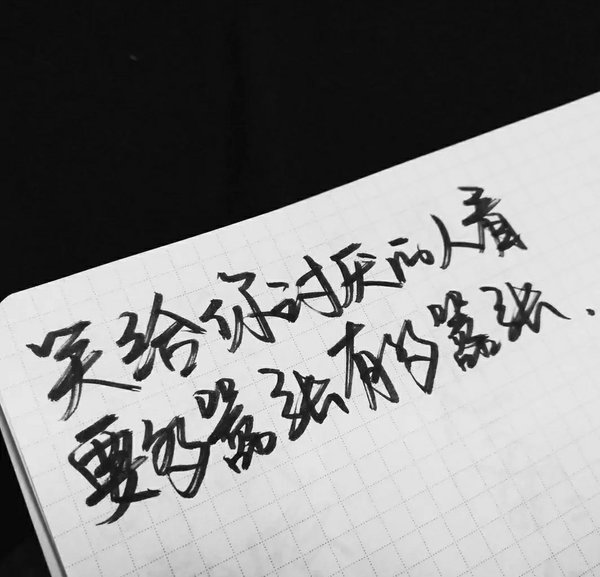 笑给你讨厌的人看
要多嚣张有多嚣张.